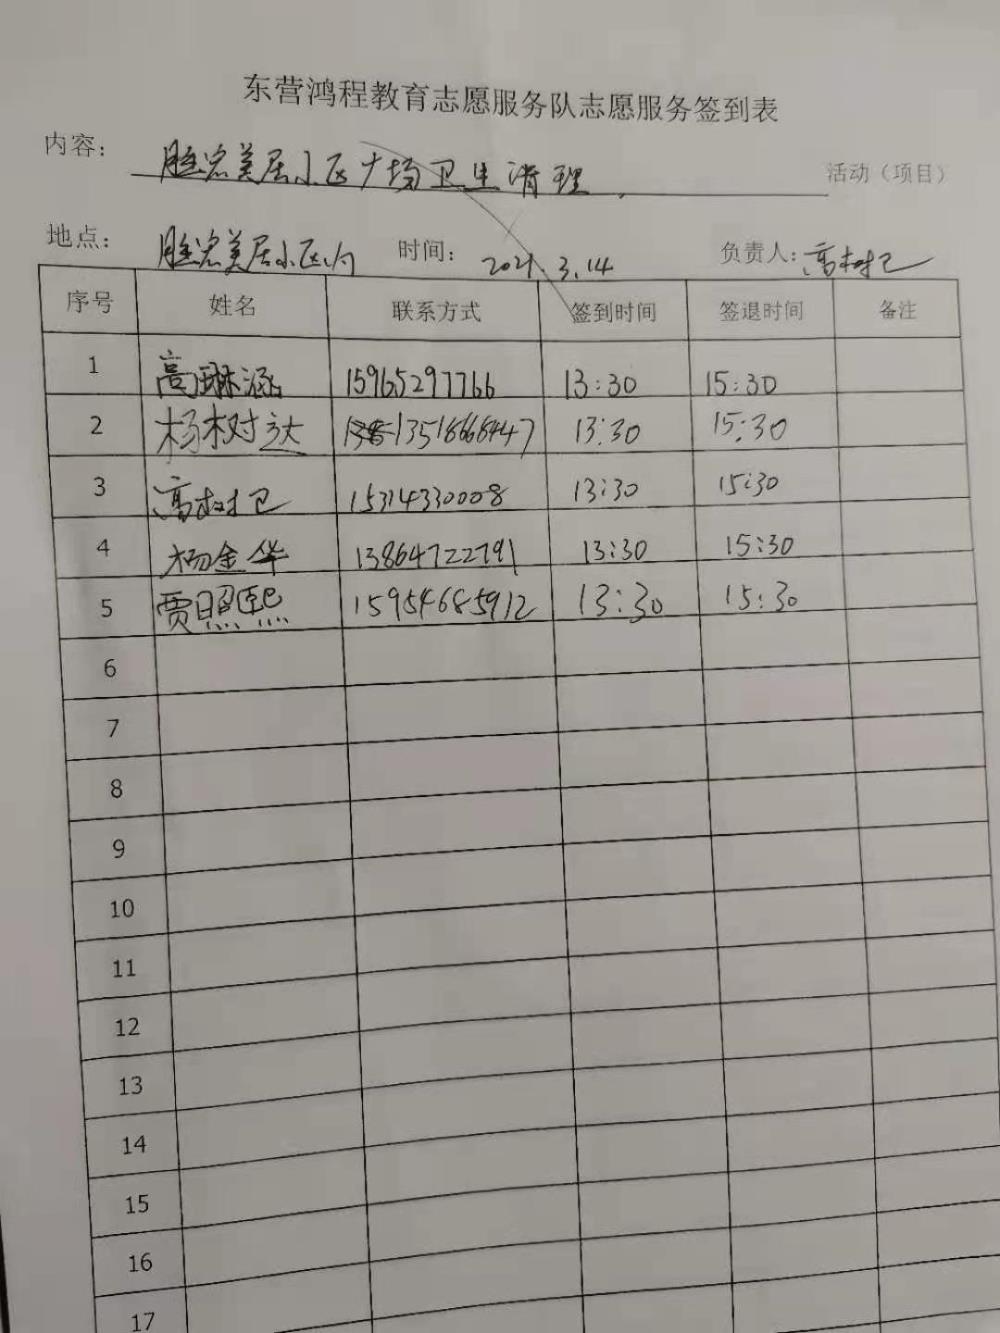 东营鸿程教育志愿服务队志愿服务签到表
内容： 胜宏美居小区广场卫生清理 活动（项目）
地点： 胜宏美居小区内 时间： 2021.3.14 负责人：高树卫
序号 姓名 联系方式 签到时间 签退时间 备注
1 高琳涵 15965297766 13:30 15:30
2 杨树达 13:30 15:30
3 高树卫 15314330008 13:30 15:30
4 杨金华 13864722791 13:30 15:30
5 贾照熙 15954685912 13:30 15:30
6
7
8
9
10
11
12
13
14
15
16
17